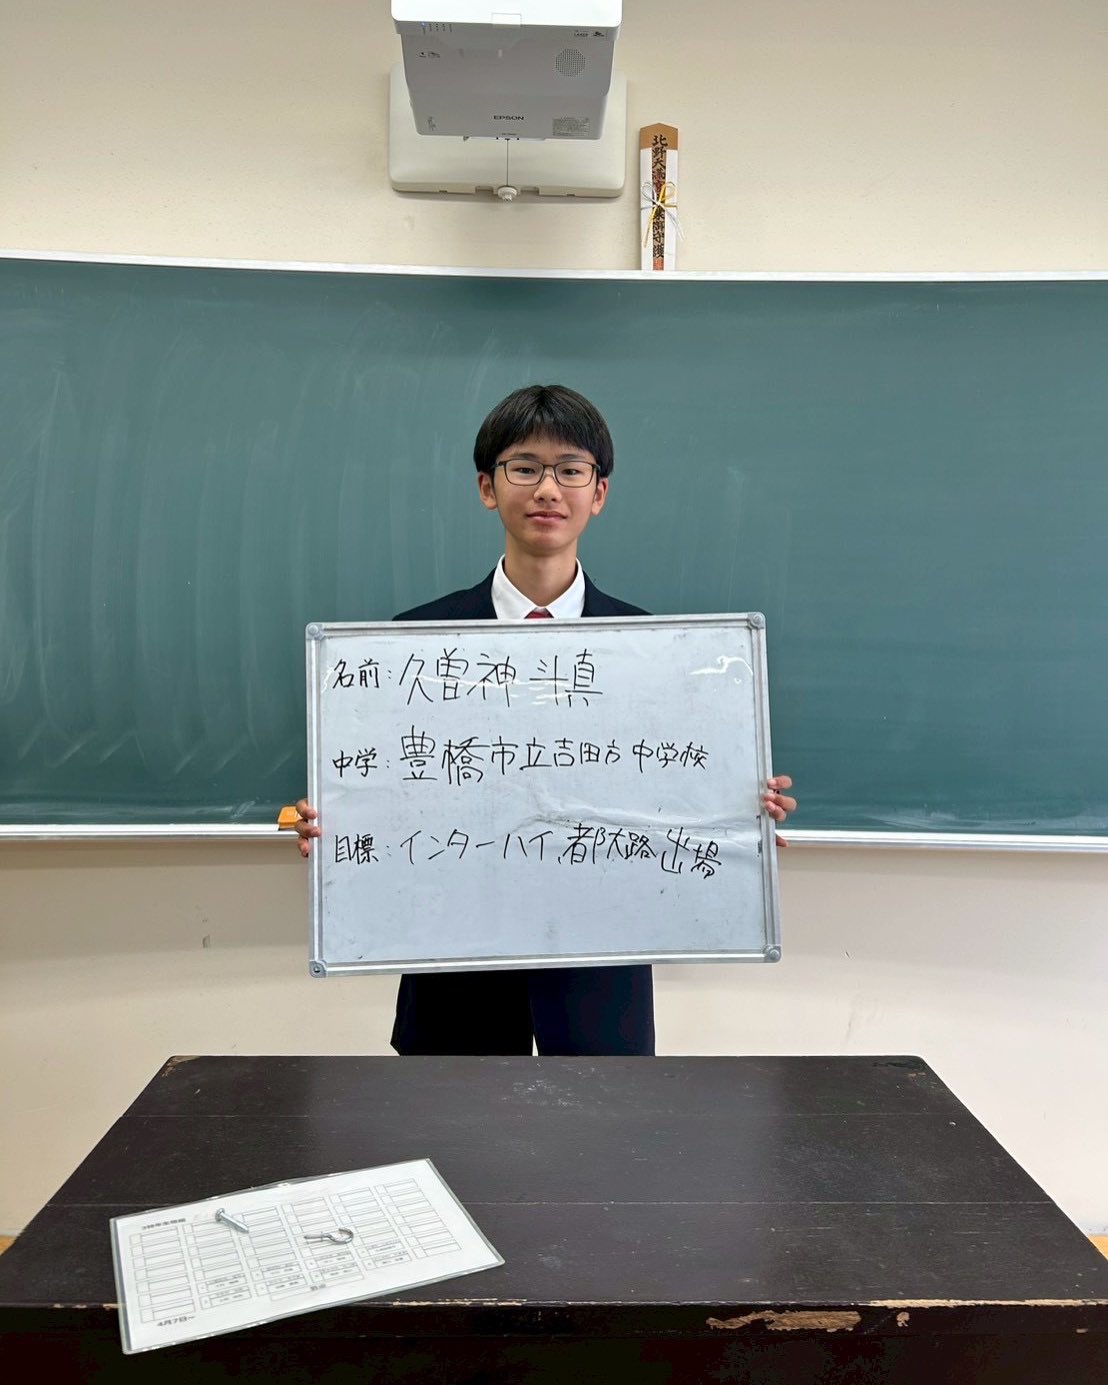 EPSON
北野天
名前：久曽神 斗真
中学：豊橋市立吉田方中学校
目標：インターハイ、都大路出場
4月7日～